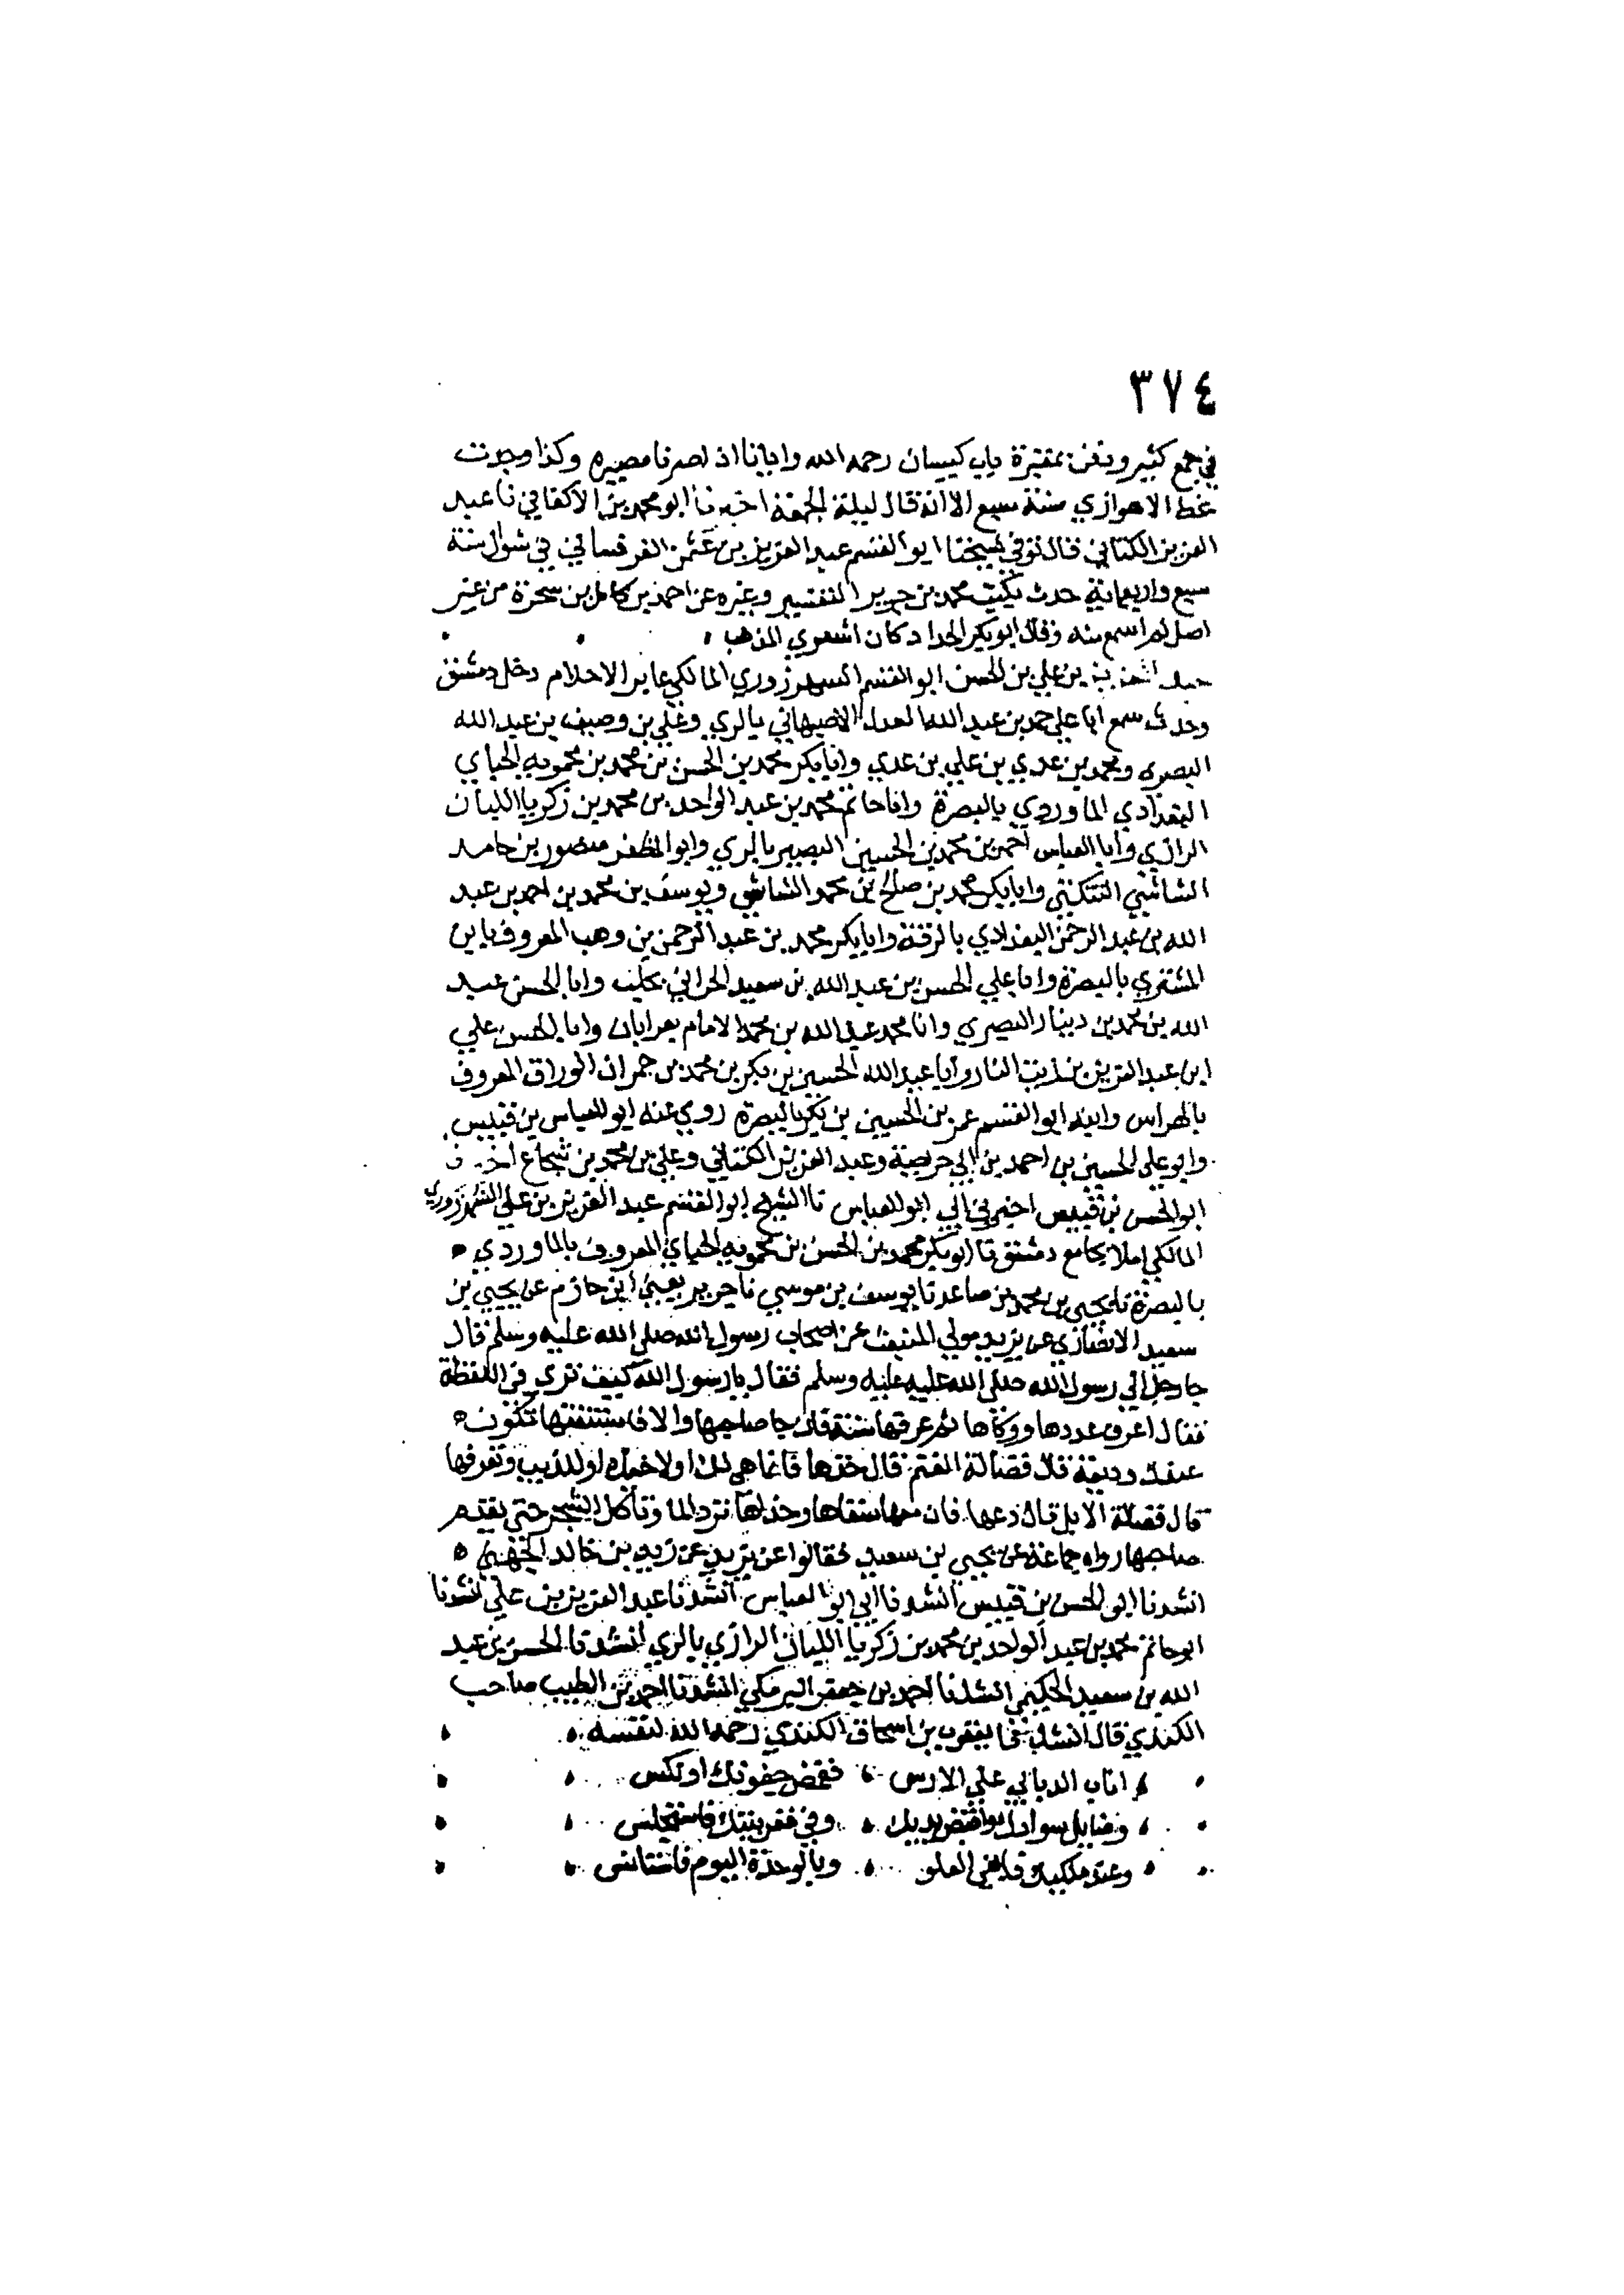 ٣٧٤
في جمع كثير ودفن بمقبرة باب كيسان رحمه الله وايانا اذ لصرنا مصيره وكذا وجدت
بخط الاهوازي سنة سبع الا انه قال ليلة الجمعة اخبرنا ابو محمد بن الاكفاني نا عبد
العزيز الكتاني قال توفي شيخنا ابو القسم عبد العزيز بن عثمن القرقساني في شوال سنة
سبع واربعماية حدث بكتب محمد بن جرير التفسير وغيره عن احمد بن كامل بن شجرة من غير
اصل لم اسمع منه وقال ابو بكر الحداد كان اشعري المذهب
عبد العزيز بن علي بن الحسن ابو القسم الشهرزوري المالكي عابر الاحلام دخل دمشق
وحدث سمع ابا علي حمد بن عبد الله الاصبهاني بالري وعلي بن وصيف بن عبد الله
البصري ومحمد بن عدي بن علي بن عدي وابا بكر محمد بن الحسن بن محمد بن محمويه الحياي
البغدادي الماوردي بالبصرة وابا حاتم محمد بن عبد الواحد بن محمد بن زكريا اللبان
الرازي وابا العباس احمد بن محمد بن الحسين البصير بالري وابو المظفر منصور بن حامد
الشاشي وابا بكر محمد بن صالح بن محمد الشاشي ويوسف بن محمد بن احمد بن عبد
الله بن عبد الرحمن البغدادي بالرقة وابا بكر محمد بن عبد الرحمن بن وهب المعروف بابن
المشتري بالبصرة وابا علي الحسن بن عبد الله بن سعيد الحراني بحلب وابا الحسن عبد
الله بن محمد بن دينار البصري وابا محمد عبد الله بن محمد الامام وابا الحسن علي
ابن عبد العزيز بن وابا عبد الله الحسين بن بكر بن محمد بن حمران الوراق المعروف
بالهراس وابنه ابو القسم عمر بن الحسين بن بكر بالبصرة روى عنه ابو العباس بن قبيس
وابو علي الحسين بن احمد بن ابي حريصة وعبد العزيز الكتاني وعلي بن محمد بن شجاع اخبرنا
ابو الحسن بن قبيس اخبرني ابي ابو العباس نا الشيخ ابو القسم عبد العزيز بن علي الشهرزوري
المالكي املا بجامع دمشق نا ابو بكر محمد بن الحسن بن محمويه الحياي المعروف بالماوردي
بالبصرة نا يحيى بن محمد بن صاعد نا يوسف بن موسى نا جرير يعني ابن حازم عن يحيى بن
سعيد الانصاري عن يزيد مولى المنبعث عن اصحاب رسول الله صلى الله عليه وسلم قال
جا رجل الى رسول الله صلى الله عليه عليه وسلم فقال يا رسول الله كيف ترى في اللقطة
فقال اعرف عددها ووكاها ثم عرفها سنة فان جا صاحبها والا فاستنفقها تكون
عندك وديعة قال فضالة الغنم قال خذها فانما هي لك او لاخيك او للذيب وتعرفها
قال فضالة الابل قال دعها فان معها سقاها وحذاها ترد الما وتاكل الشجر حتى يقدم
صاحبها رواه جماعة عن يحيى بن سعيد فقالوا عن يزيد عن زيد بن خالد الجهني
انشدنا ابو الحسن بن قبيس انشدنا ابي ابو العباس انشدنا عبد العزيز بن علي انشدنا
ابو حاتم محمد بن عبد الواحد بن محمد بن زكريا اللبان الرازي بالري انشدنا الحسن بن عبد
الله بن سعيد انشدنا احمد بن جعفر البرمكي انشدنا احمد بن الطيب صاحب
الكندي قال انشدني يعقوب بن اسحاق الكندي رحمه الله لنفسه
اناب الدبابي على الارس فغمض جفونك او نكس
وضايل سوادك واقبض يديك وفي قعر بيتك فاستجلس
وعند مليكك فابغي العلو وبالوحدة اليوم فاستانس